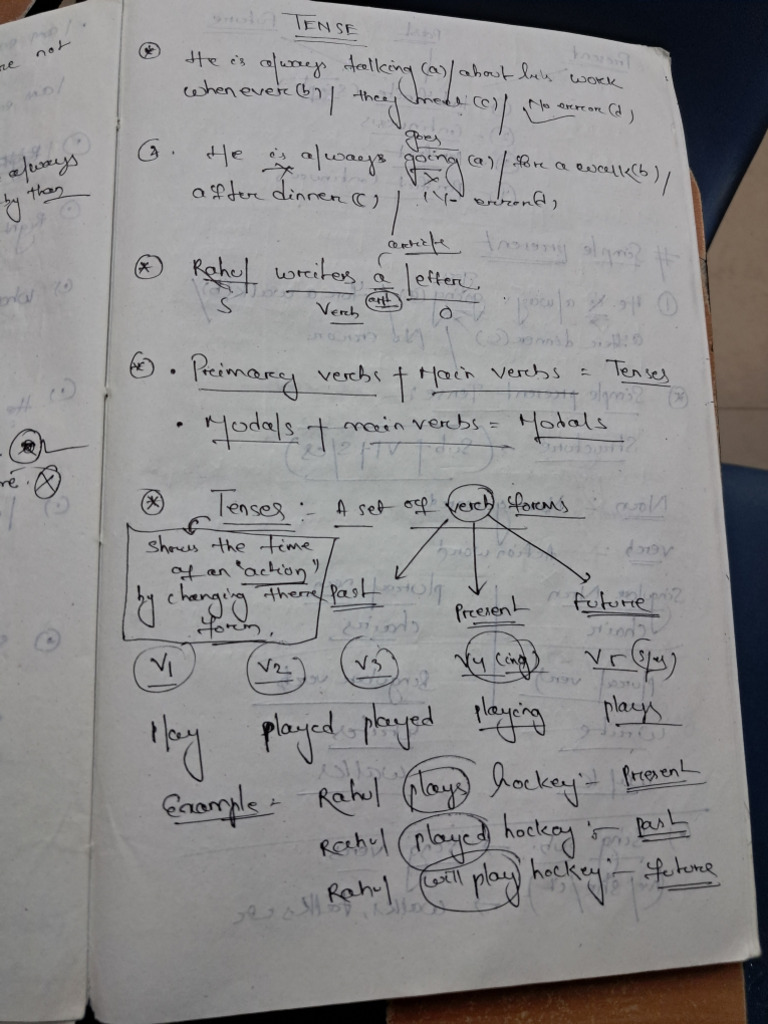 re not
always
by than
re.
TENSE
He is always talking (a) / about his work
whenever (b) / they meet (c) / No error (d)
goes
2. He is always going (a) / for a walk (b) /
after dinner (c) / error (d)
article
Rahul writes a letter.
S Verb art O
• Primary verbs + Main verbs = Tenses
• Modals + main verbs = Modals
Tenses :- A set of verb forms
shows the time
of an "action"
by changing there
form.
past present future
V1 V2 V3 V4 (ing) V5 (s/es)
Play played played playing plays
Example :- Rahul plays hockey :- Present
Rahul played hockey :- past
Rahul will play hockey :- future